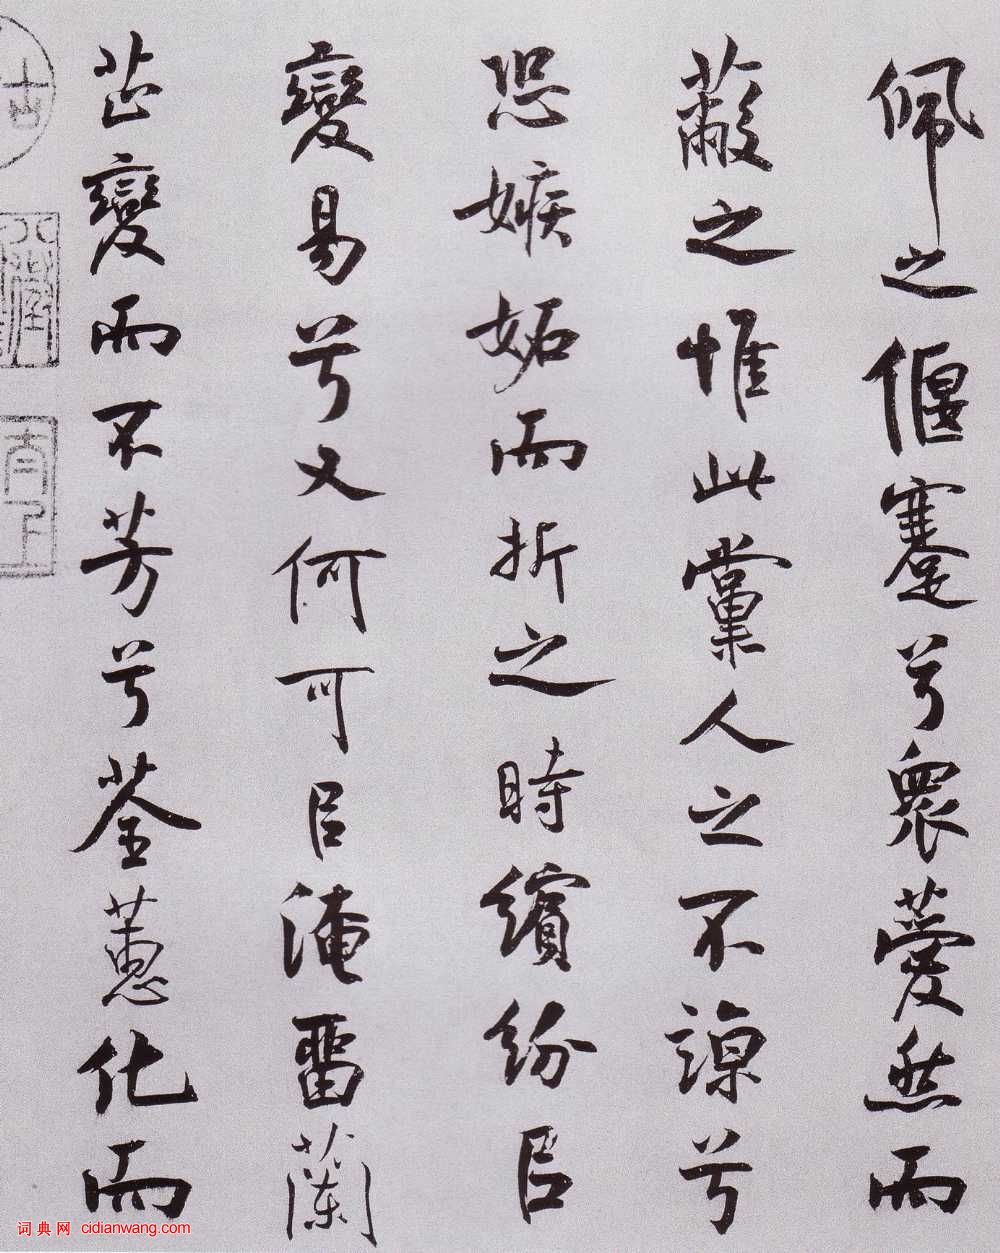 佩之偃蹇兮衆薆然而
蔽之惟此黨人之不諒兮
恐嫉妬而折之時繽紛㠯
變易兮又何可㠯淹畱蘭
芷變而不芳兮荃蕙化而
词典网 cidianwang.com